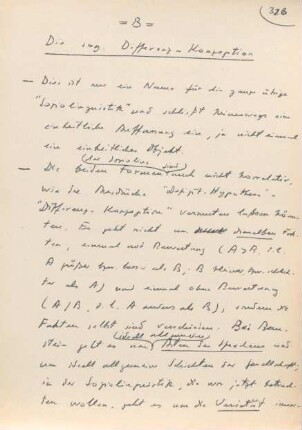 37B
= B =
Die sog. Differenz-Konzeption
— Dies ist nur ein Name für die ganze übrige
"Soziolinguistik" und schließt keineswegs eine
einheitliche Auffassung ein, ja nicht einmal
ein einheitliches Objekt.
— Die beiden Formen sind nicht korrelativ,
wie die Ausdrücke "Defizit-Hypothese" –
"Differenz-Konzeption" vermuten lassen könn-
ten. Es geht nicht um dieselben Fak-
ten, einmal mit Bewertung (A > B, d.h.
A größer bzw. besser als B, B kleiner bzw. schlech-
ter als A) und einmal ohne Bewertung
(A / B, d.h. A anders als B), sondern die
Fakten selbst sind verschieden. Bei Bern-
stein geht es um Arten des Sprechens und
um sehr allgemeine Schichten der Gesellschaft;
in der Soziolinguistik, die wir jetzt betrach-
ten wollen, geht es um die Varietät inner-